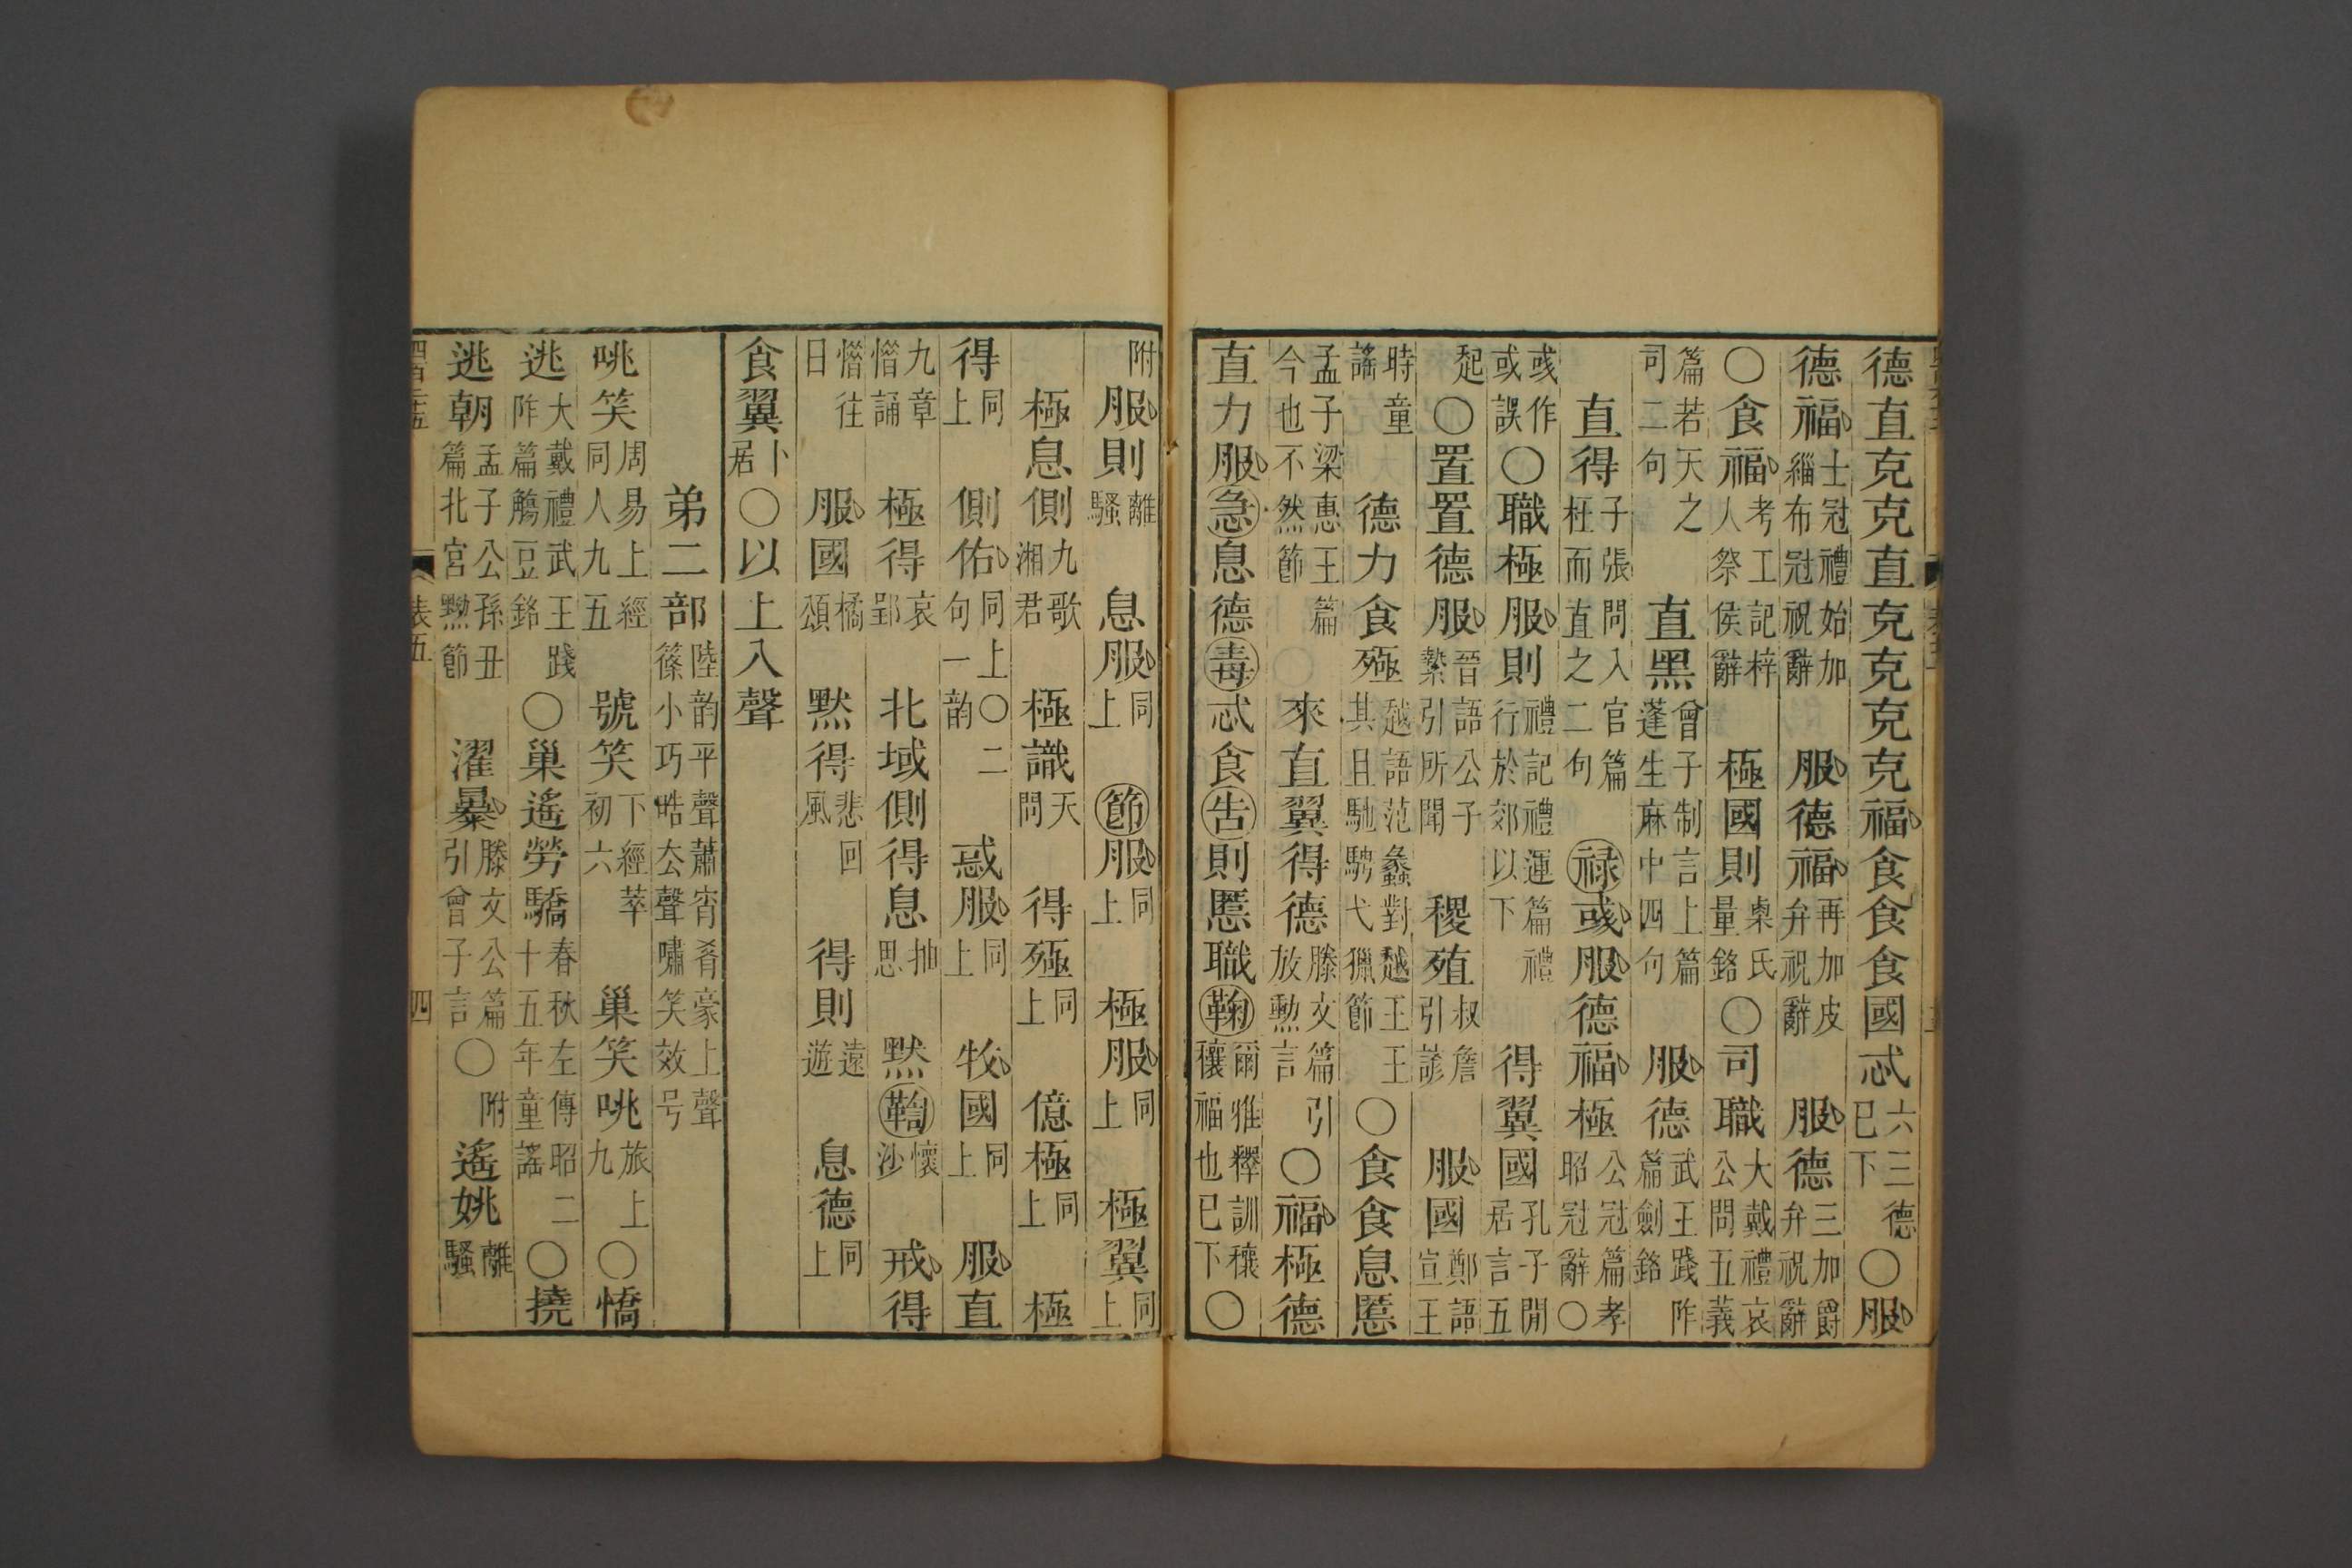 德直克克直克克克克福食食食國忒六三德巳下〇服
德福士冠禮始加緇布冠祝辭服德福再加皮弁祝辭服德三加爵弁祝辭
〇食福考工記梓人祭侯辭極國則㮚氏量銘〇司職大戴禮哀公問五義
篇若天之司二句直黑曾子制言上篇蓬生麻中四句服德武王踐阼篇劍銘
直得子張問入官篇枉而直之二句祿彧服德福極公冠篇孝昭冠辭〇
彧作或誤〇職極服則禮記禮運篇禮行於郊以下得翼國孔子閒居言五
起〇置置德服晉語公子縶引所聞稷殖叔詹引諺服國鄭語宣王
時童謠德力食殛越語范蠡對越王王其且馳騁弋獵節〇食食息慝
孟子梁惠王篇今也不然節來直翼得德滕文篇引放勳言〇福極德
直力服急息德毒忒食告則慝職鞠爾雅釋訓穰穰福也巳下〇
附服則離騷息服同上節服同上極服同上極翼同上
極息側九歌湘君極識天問得殛同上億極同上極
得同上側佑同上句一〇二韵惑服同上牧國同上服直
九章惜誦極得哀郢北域側得息抽思默鞫懷沙戒得
惜往日服國橘頌默得悲回風得則遠遊息德同上
食翼卜居〇以上入聲
弟二部陸韵平聲蕭宵肴豪上聲篠小巧晧厺聲嘯笑效号
咷笑周易上經同人九五號笑下經萃初六巢笑咷旅上九〇憍
逃大戴禮武王踐阼篇觴豆銘〇巢遙勞驕春秋左傳昭二十五年童謠〇撓
逃朝孟子公孫丑篇北宮黝節濯暴滕文公篇引曾子言〇附遙姚離騷
表五
四